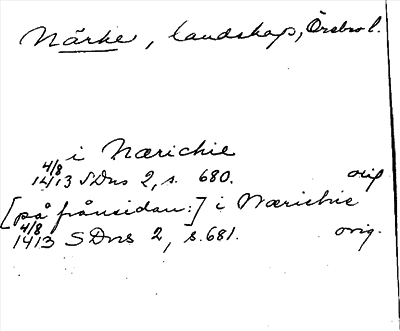 Närke, landskap, Örebro l.
i Nærichie
4/8
1413 SDns 2, s. 680. orig
[på frånsidan:] i Nærichie
4/8
1413 SDns 2, s. 681. orig.